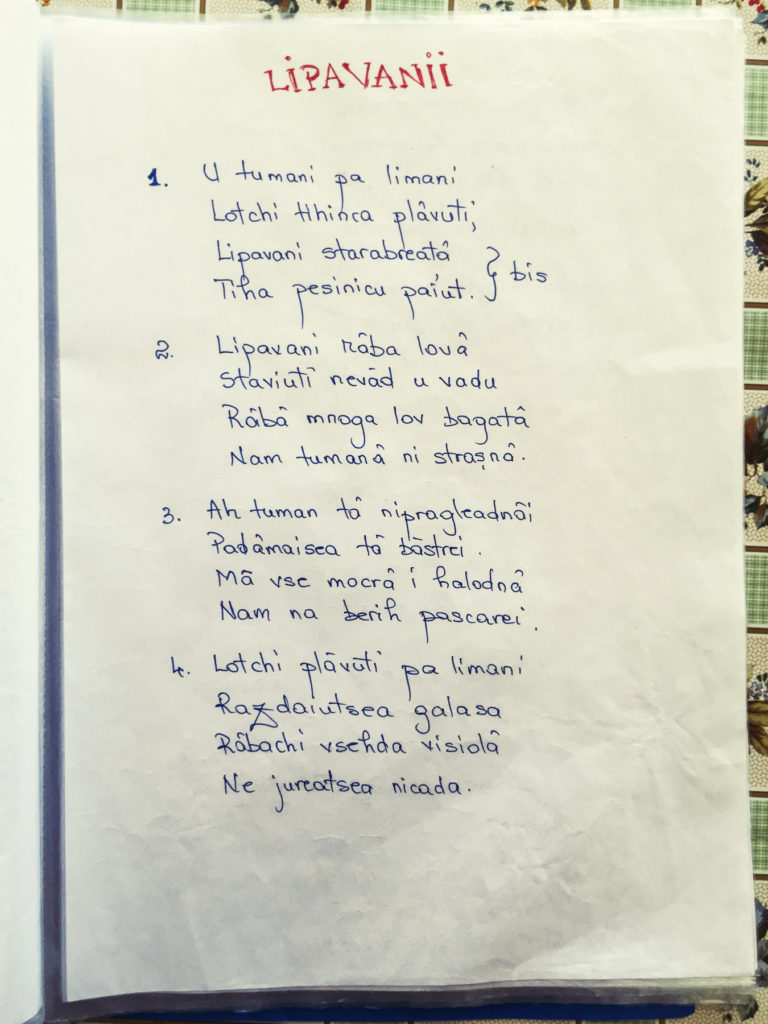 LIPAVANII
1. U tumani pa limani
Lotchi tihinca plâvuti;
Lipavani starabreatâ
Tiha pesinicu paiut. } bis
2. Lipavani râba lovâ
Staviuti nevâd u vadu
Râbâ mnoga lov bagatâ
Nam tumanâ ni strașnâ.
3. Ah tuman tâ nipragleadnâi
Padâmaisea tâ bâstrei.
Mâ vse mocrâ i halodnâ
Nam na berih pascarei.
4. Lotchi plâvuti pa limani
Razdaiutsea galasa
Râbachi vsehda visiolâ
Ne jureatsea nicada.